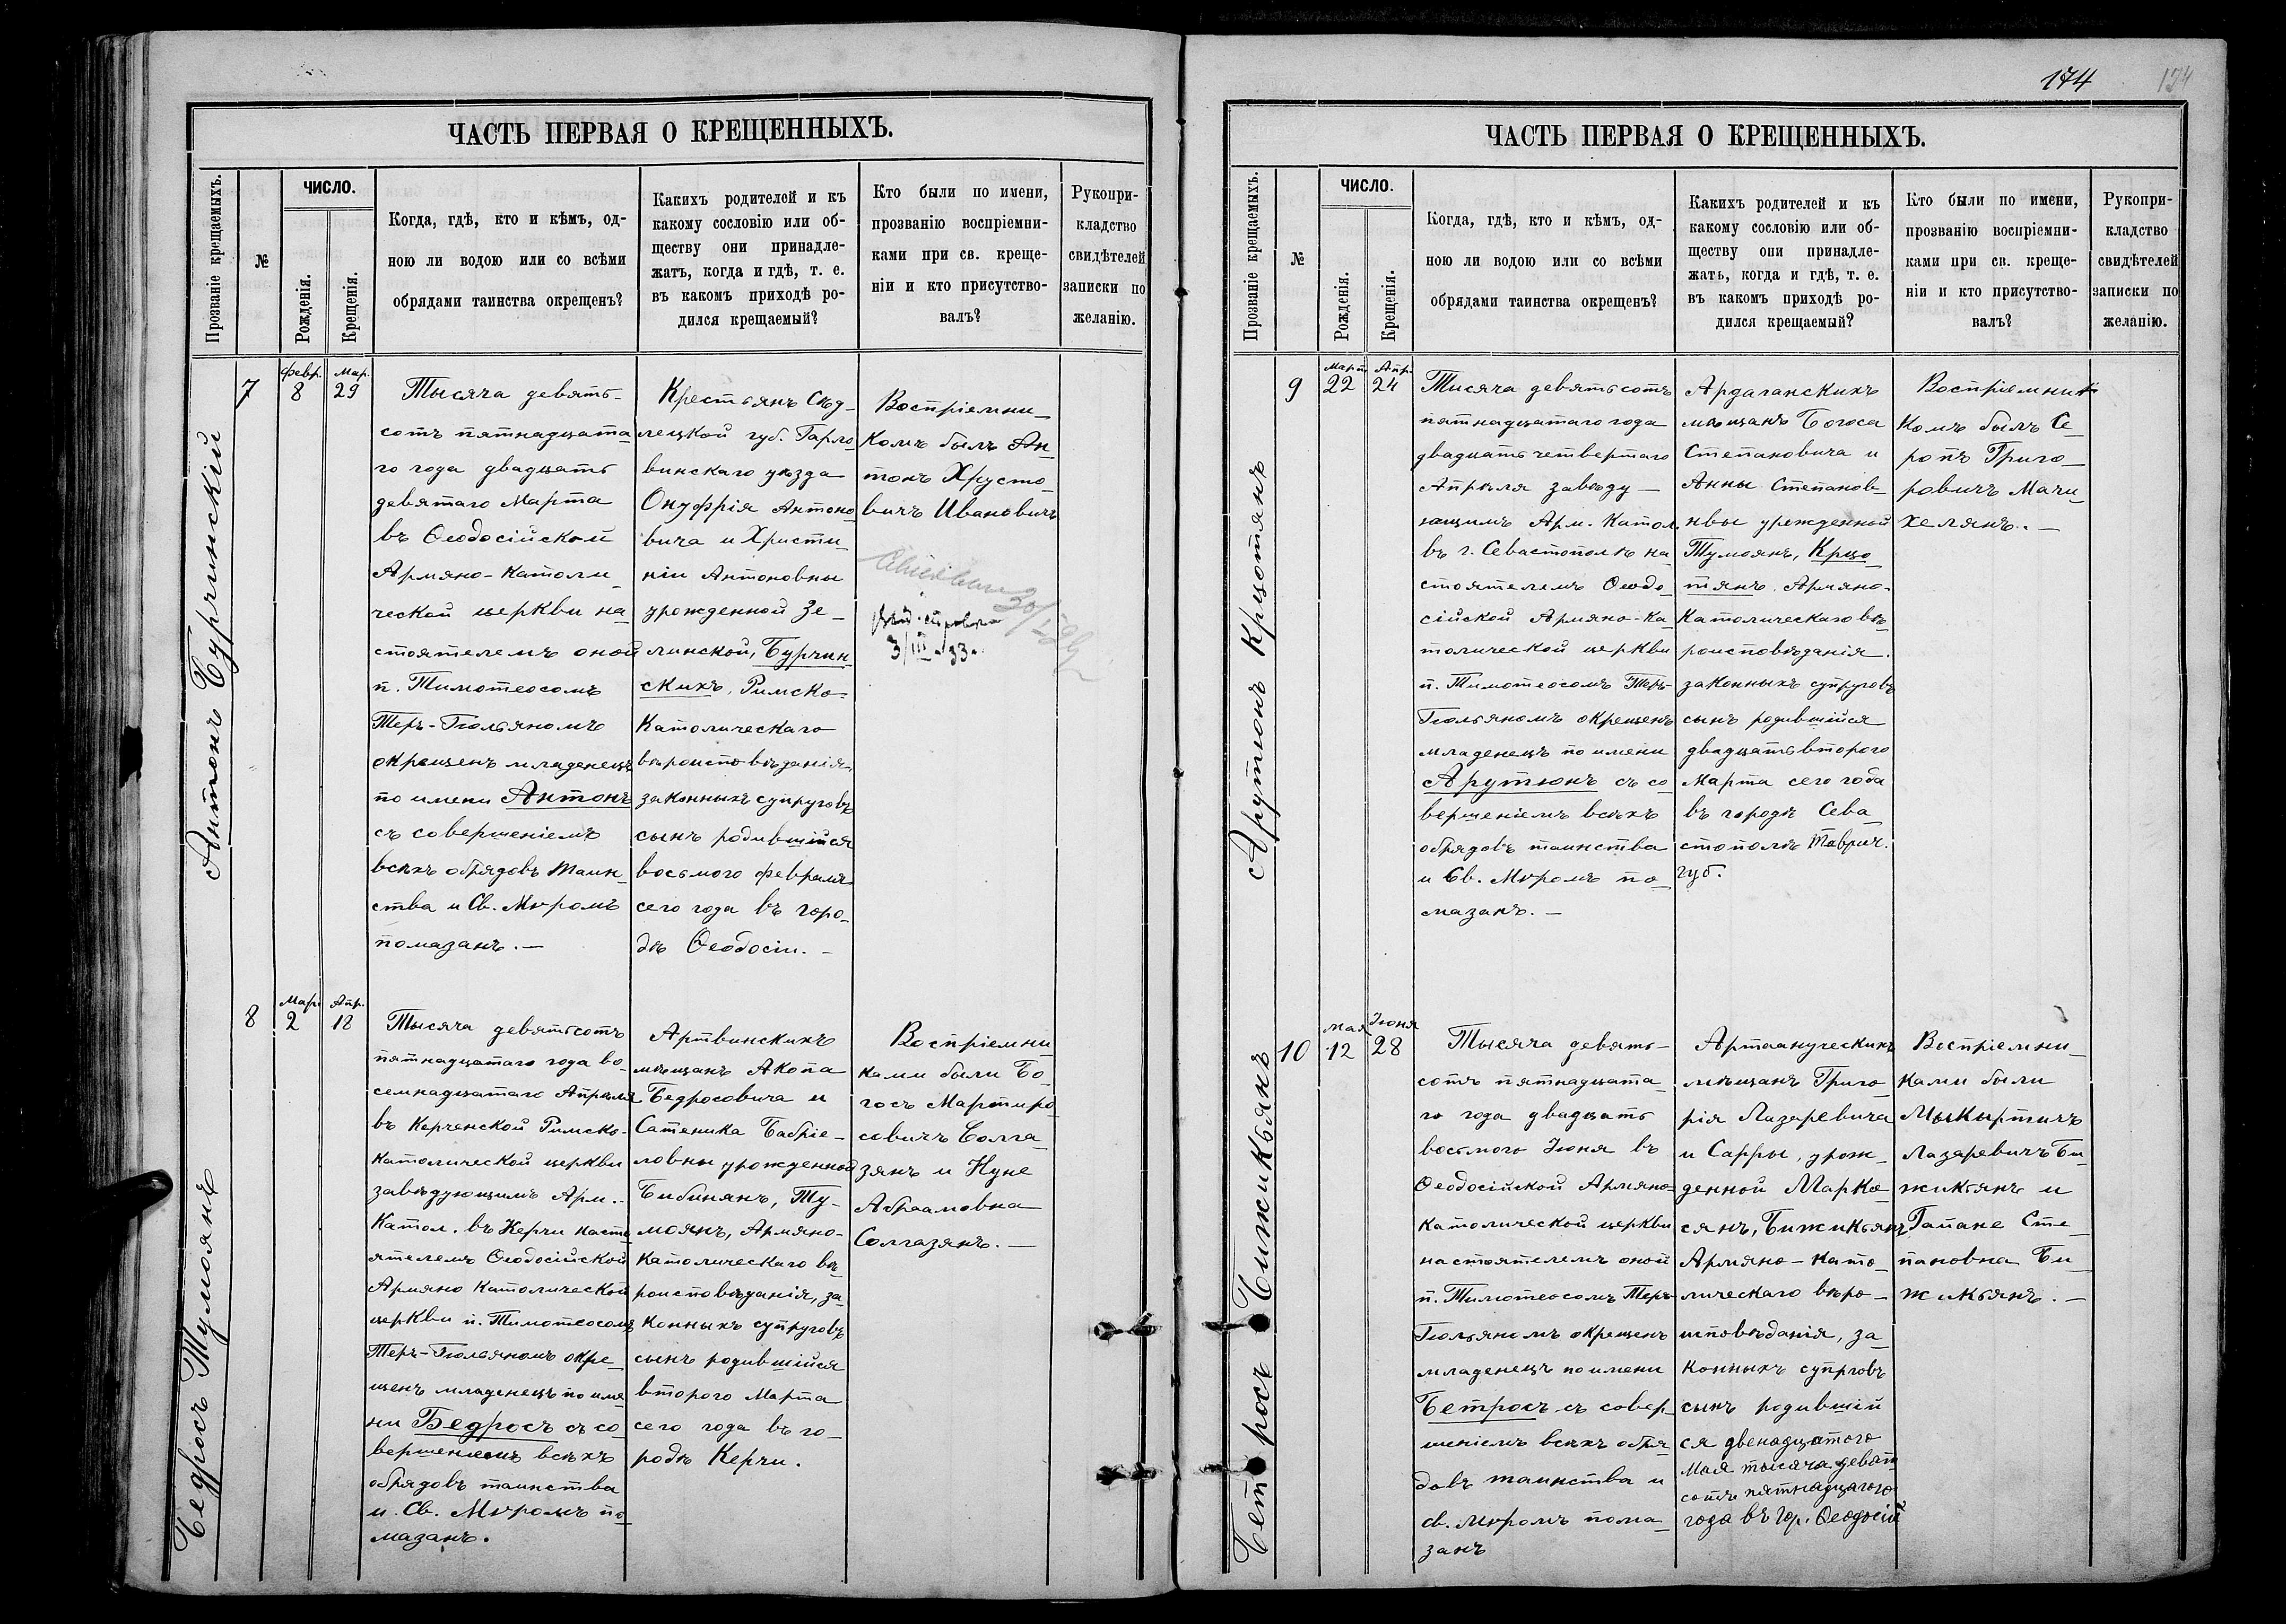 174
174
ЧАСТЬ ПЕРВАЯ О КРЕЩЕННЫХЪ.
Прозваніе крещаемыхъ.
№
ЧИСЛО.
Рожденія.
Крещенія.
Когда, гдѣ, кто и кѣмъ, од-
ною ли водою или со всѣми
обрядами таинства окрещенъ?
Какихъ родителей и къ
какому сословію или об-
ществу они принадле-
жатъ, когда и гдѣ, т. е.
въ какомъ приходѣ ро-
дился крещаемый?
Кто были по имени,
прозванію воспріемни-
ками при св. креще-
ніи и кто присутство-
валъ?
Рукопри-
кладство
свидѣтелей
записки по
желанію.
Антонъ Бурчинскій
7
Февр.
8
Мар.
29
Тысяча девять-
сотъ пятнадцата-
го года двадцать
девятаго Марта
въ Ѳеодосійской
Армяно-Католи-
ческой церкви на-
стоятелемъ оной
п. Тимотеосомъ
Теръ-Гюльяномъ
окрещенъ младенецъ
по имени Антонъ
съ совершеніемъ
всѣхъ обрядовъ таин-
ства и Св. Мѵромъ
помазанъ. —
Крестьянъ Сѣд-
лецкой губ. Гарво-
винскаго уѣзда
Онуфрія Антоно-
вича и Христи-
ніи Антоновны
урожденной Зе-
линской, Бурчин-
скихъ, Римско-
Католическаго
вѣроисповѣданія,
законныхъ супруговъ
сынъ родившійся
восьмого февраля
сего года въ горо-
дѣ Ѳеодосіи. —
Воспріемни-
комъ былъ Ан-
тонъ Хрусто-
вичъ Ивановичъ
3/III 33
Бедросъ Тумоянъ
8
Мар.
2
Апр.
18
Тысяча девятьсотъ
пятнадцатаго года во-
семнадцатаго Апрѣля
въ Керченской Римско-
католической церкви
завѣдующимъ Арм.-
Катол. въ Керчи насто-
ятелемъ Ѳеодосійской
Армяно Католической
церкви п. Тимотеосомъ
Теръ-Гюльяномъ окре-
щенъ младенецъ по име-
ни Бедросъ съ со-
вершеніемъ всѣхъ
обрядовъ таинства
и Св. Мѵромъ по-
мазанъ.
Артвинскихъ
мѣщанъ Акопа
Бедросовича и
Сатеника Габріе-
ловны урожденной
Бибинянъ, Ту-
моянъ, Армяно-
Католическаго вѣ-
роисповѣданія, за-
конныхъ супруговъ
сынъ родившійся
второго Марта
сего года въ го-
родѣ Керчи.
Воспріемни-
ками были Бо-
госъ Мартиро-
совичъ Солга-
зянъ и Нуне
Абраамовна
Солгазянъ. —
ЧАСТЬ ПЕРВАЯ О КРЕЩЕННЫХЪ.
Прозваніе крещаемыхъ.
№
ЧИСЛО.
Рожденія.
Крещенія.
Когда, гдѣ, кто и кѣмъ, од-
ною ли водою или со всѣми
обрядами таинства окрещенъ?
Какихъ родителей и къ
какому сословію или об-
ществу они принадле-
жатъ, когда и гдѣ, т. е.
въ какомъ приходѣ ро-
дился крещаемый?
Кто были по имени,
прозванію воспріемни-
ками при св. креще-
ніи и кто присутство-
валъ?
Рукопри-
кладство
свидѣтелей
записки по
желанію.
Арутюнъ Крцотянъ
9
Март.
22
Апр.
24
Тысяча девятьсотъ
пятнадцатаго года
двадцать четвертаго
Апрѣля завѣду-
ющимъ Арм. Катол.
въ г. Севастополѣ на-
стоятелемъ Ѳеодо-
сійской Армяно-Ка-
толической церкви
п. Тимотеосомъ Теръ-
Гюльяномъ окрещенъ
младенецъ по имени
Арутюнъ съ со-
вершеніемъ всѣхъ
обрядовъ таинства
и Св. Мѵромъ по-
мазанъ. —
Ардаганскихъ
мѣщанъ Богоса
Степановича и
Анны Степанов-
ны урожденной
Тумоянъ, Крцо-
тянъ. Армяно-
Католическаго вѣ-
роисповѣданія.
законныхъ супруговъ
сынъ родившійся
двадцать второго
Марта сего года
въ городѣ Сева-
стополѣ Таврич.
губ.
Воспріемни-
комъ былъ Се-
ропъ Григо-
ровичъ Мачи-
хелянъ. —
Бетросъ Бижикьянъ
10
Мая
12
Іюня
28
Тысяча девять-
сотъ пятнадцата-
го года двадцать
восьмого Іюня въ
Ѳеодосійской Армяно-
католической церкви
настоятелемъ оной
п. Тимотеосомъ Теръ-
Гюльяномъ окрещенъ
младенецъ по имени
Бетросъ съ совер-
шеніемъ всѣхъ обря-
довъ таинства и
св. Мѵромъ пома-
занъ
Артаануческихъ
мѣщанъ Григо-
рія Лазаревича
и Сарры, урож-
денной Марко-
сянъ, Бижикьянъ
Армяно-Като-
лическаго вѣро-
исповѣданія, за-
конныхъ супрговъ
сынъ родившій
ся двенадцатого
Мая тысяча девят
сотъ пятнадцатого
года въ гор. Ѳеодосіи
Воспріемни-
ками были
Мыкыртичъ
Лазаревичъ Би-
жикьянъ и
Гапане Сте-
пановна Би-
жикьянъ. —